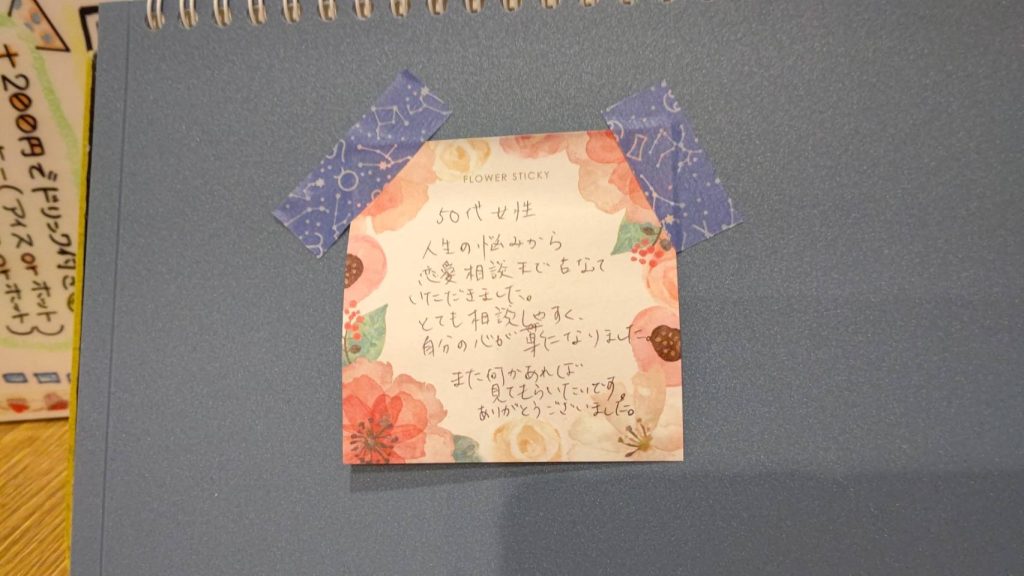 +200円でドリンク付き
ヒー(アイスorホット)
orホット)
FLOWER STICKY
50代女性
人生の悩みから
恋愛相談まで
いただきました。
とても相談しやすく、
自分の心が になりました。
また何かあれば
見てもらいたいです
ありがとうございました。